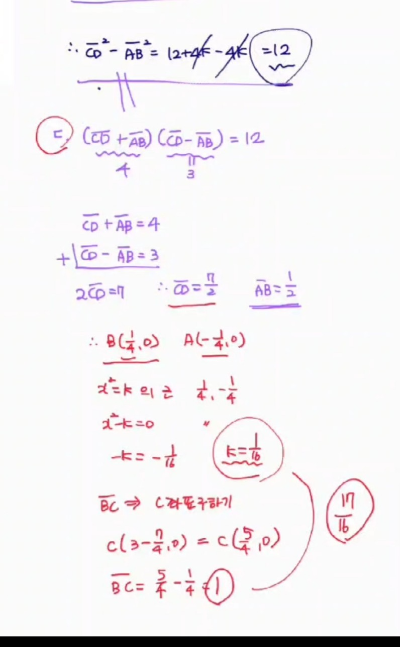 ∴ C̅D̅² - A̅B̅² = 12+4k - 4k = 12
ㄷ (C̅D̅ + A̅B̅)(C̅D̅ - A̅B̅) = 12
4 3
C̅D̅ + A̅B̅ = 4
+ C̅D̅ - A̅B̅ = 3
2C̅D̅ = 7 ∴ C̅D̅ = 7/2 A̅B̅ = 1/2
∴ B(1/4, 0) A(-1/4, 0)
x² = k 의 근 1/4, -1/4
x² - k = 0 〃
-k = -1/16 k = 1/16
B̅C̅ ⇒ C좌표구하기
C(3 - 7/4, 0) = C(5/4, 0)
B̅C̅ = 5/4 - 1/4 = 1
17/16